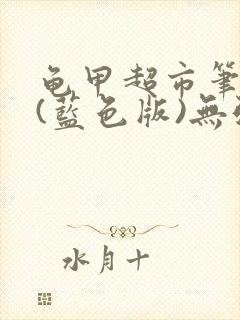 龟甲超市筆
(藍色版)無
水月十